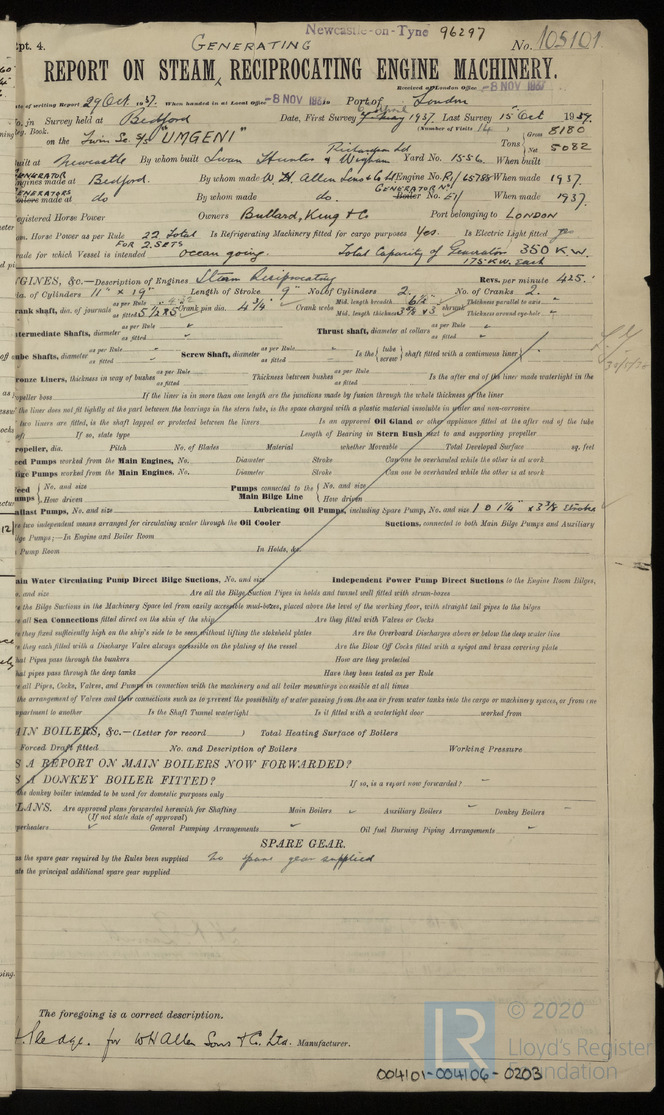 Rpt. 4.
Newcastle-on-Tyne 96297
No. 105101
GENERATING
REPORT ON STEAM, RECIPROCATING ENGINE MACHINERY.
Received at London Office -8 NOV 1937
Date of writing Report 29 Oct 1937. When handed in at Local Office -8 NOV 1937 Port of London
No. in Survey held at Bedford Date, First Survey May 1937. Last Survey 15 Oct 1937.
Reg. Book. (Number of Visits 14)
on the Twin Sc. S/S "UMGENI" Tons Gross 8180 Net 5082
Built at Newcastle By whom built Swan Hunter & Wigham Richardson Ld Yard No. 1556. When built
GENERATOR
Engines made at Bedford. By whom made W. H. Allen Sons & Co Ld Engine No. R1/65785 When made 1937.
GENERATORS
Boilers made at do By whom made do. GENERATOR No. Boiler No. E1/ When made 1937.
Registered Horse Power Owners Bullard, King & Co Port belonging to LONDON
Nom. Horse Power as per Rule 22 Total FOR 2 SETS Is Refrigerating Machinery fitted for cargo purposes Yes. Is Electric Light fitted yes
Trade for which Vessel is intended ocean going. Total Capacity of Generators 350 K.W.
175 K.W. each
ENGINES, &c.—Description of Engines Steam Reciprocating Revs. per minute 425.
Dia. of Cylinders 11" × 19" Length of Stroke 9" No. of Cylinders 2. No. of Cranks 2.
Crank shaft, dia. of journals as per Rule as fitted 5 1/2 × 5 Crank pin dia. 4 3/4" Crank webs Mid. length breadth 6 1/2" Mid. length thickness 3 5/8 × 3 shrunk Thickness parallel to axis " Thickness around eye-hole "
Intermediate Shafts, diameter as per Rule " as fitted Thrust shaft, diameter at collars as per Rule " as fitted
Tube Shafts, diameter as per Rule as fitted " Screw Shaft, diameter as per Rule " as fitted Is the tube screw shaft fitted with a continuous liner
Bronze Liners, thickness in way of bushes as per Rule as fitted Thickness between bushes as per Rule as fitted Is the after end of the liner made watertight in the
propeller boss If the liner is in more than one length are the junctions made by fusion through the whole thickness of the liner
If the liner does not fit tightly at the part between the bearings in the stern tube, is the space charged with a plastic material insoluble in water and non-corrosive
If two liners are fitted, is the shaft lapped or protected between the liners Is an approved Oil Gland or other appliance fitted at the after end of the tube
shaft If so, state type Length of Bearing in Stern Bush next to and supporting propeller
Propeller, dia. Pitch No. of Blades Material whether Moveable Total Developed Surface sq. feet
Feed Pumps worked from the Main Engines, No. Diameter Stroke Can one be overhauled while the other is at work
Bilge Pumps worked from the Main Engines, No. Diameter Stroke Can one be overhauled while the other is at work
Feed Pumps No. and size How driven Pumps connected to the Main Bilge Line No. and size How driven
Ballast Pumps, No. and size Lubricating Oil Pumps, including Spare Pump, No. and size 1 @ 1 1/4" × 3 3/8 Stroke
Are two independent means arranged for circulating water through the Oil Cooler Suctions, connected to both Main Bilge Pumps and Auxiliary
Bilge Pumps;—In Engine and Boiler Room
In Pump Room In Holds, &c.
Main Water Circulating Pump Direct Bilge Suctions, No. and size Independent Power Pump Direct Suctions to the Engine Room Bilges,
No. and size Are all the Bilge Suction Pipes in holds and tunnel well fitted with strum-boxes
Are the Bilge Suctions in the Machinery Space led from easily accessible mud-boxes, placed above the level of the working floor, with straight tail pipes to the bilges
Are all Sea Connections fitted direct on the skin of the ship Are they fitted with Valves or Cocks
Are they fixed sufficiently high on the ship's side to be seen without lifting the stokehold plates Are the Overboard Discharges above or below the deep water line
Are they each fitted with a Discharge Valve always accessible on the plating of the vessel Are the Blow Off Cocks fitted with a spigot and brass covering plate
What Pipes pass through the bunkers How are they protected
What pipes pass through the deep tanks Have they been tested as per Rule
Are all Pipes, Cocks, Valves, and Pumps in connection with the machinery and all boiler mountings accessible at all times
Is the arrangement of Valves and their connections such as to prevent the possibility of water passing from the sea or from water tanks into the cargo or machinery spaces, or from one
compartment to another Is the Shaft Tunnel watertight Is it fitted with a watertight door worked from
MAIN BOILERS, &c.—(Letter for record ) Total Heating Surface of Boilers
Is Forced Draft fitted No. and Description of Boilers Working Pressure
IS A REPORT ON MAIN BOILERS NOW FORWARDED?
IS A DONKEY BOILER FITTED? If so, is a report now forwarded?
Is the donkey boiler intended to be used for domestic purposes only
PLANS. Are approved plans forwarded herewith for Shafting Main Boilers Auxiliary Boilers Donkey Boilers
(If not state date of approval)
Superheaters General Pumping Arrangements Oil fuel Burning Piping Arrangements
SPARE GEAR.
Has the spare gear required by the Rules been supplied no spare gear supplied
State the principal additional spare gear supplied
The foregoing is a correct description.
H. Sledge. for W H Allen Sons & Co. Ltd. Manufacturer.
© 2020
LR
Lloyd's Register
Foundation
004101-004106-0203